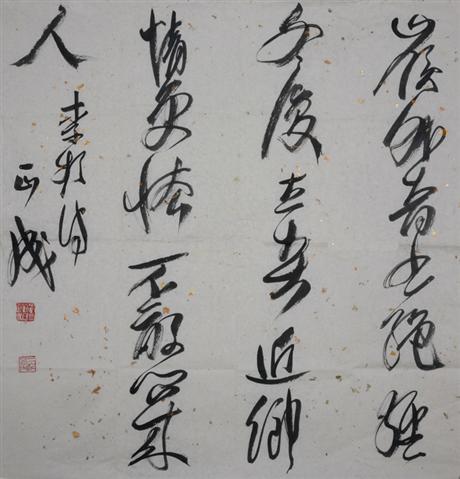 嶺外音書絶經
冬復立春近鄉
情更怯不敢問來
人
李频诗
正成